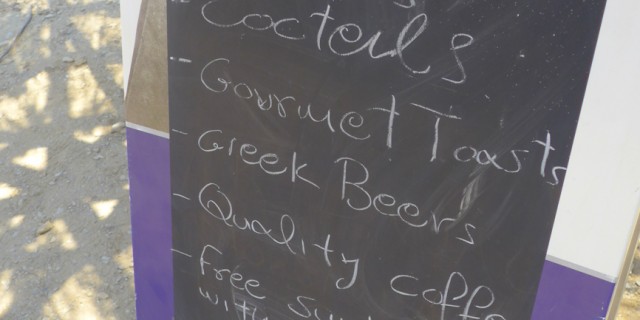 - Cocteils
- Gourmet Toasts
- Greek Beers
- Quality coffe
- Free
with